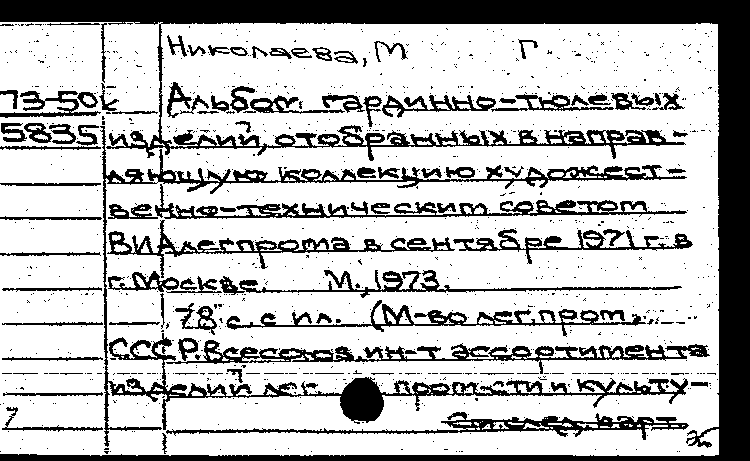 Николаева, М Г.
73-50к Альбом гардинно-тюлевых
5835 изделий, отобранных в направ-
ляющую коллекцию художест-
венно-техническим советом
ВИАлегпрома в сентябре 1971 г. в
г. Москве. М., 1973.
78 с. с ил. (М-во лег. пром.
СССР. Всесоюз. ин-т ассортимента
изделий лег. пром-сти и культу-
7 См. след. карт.